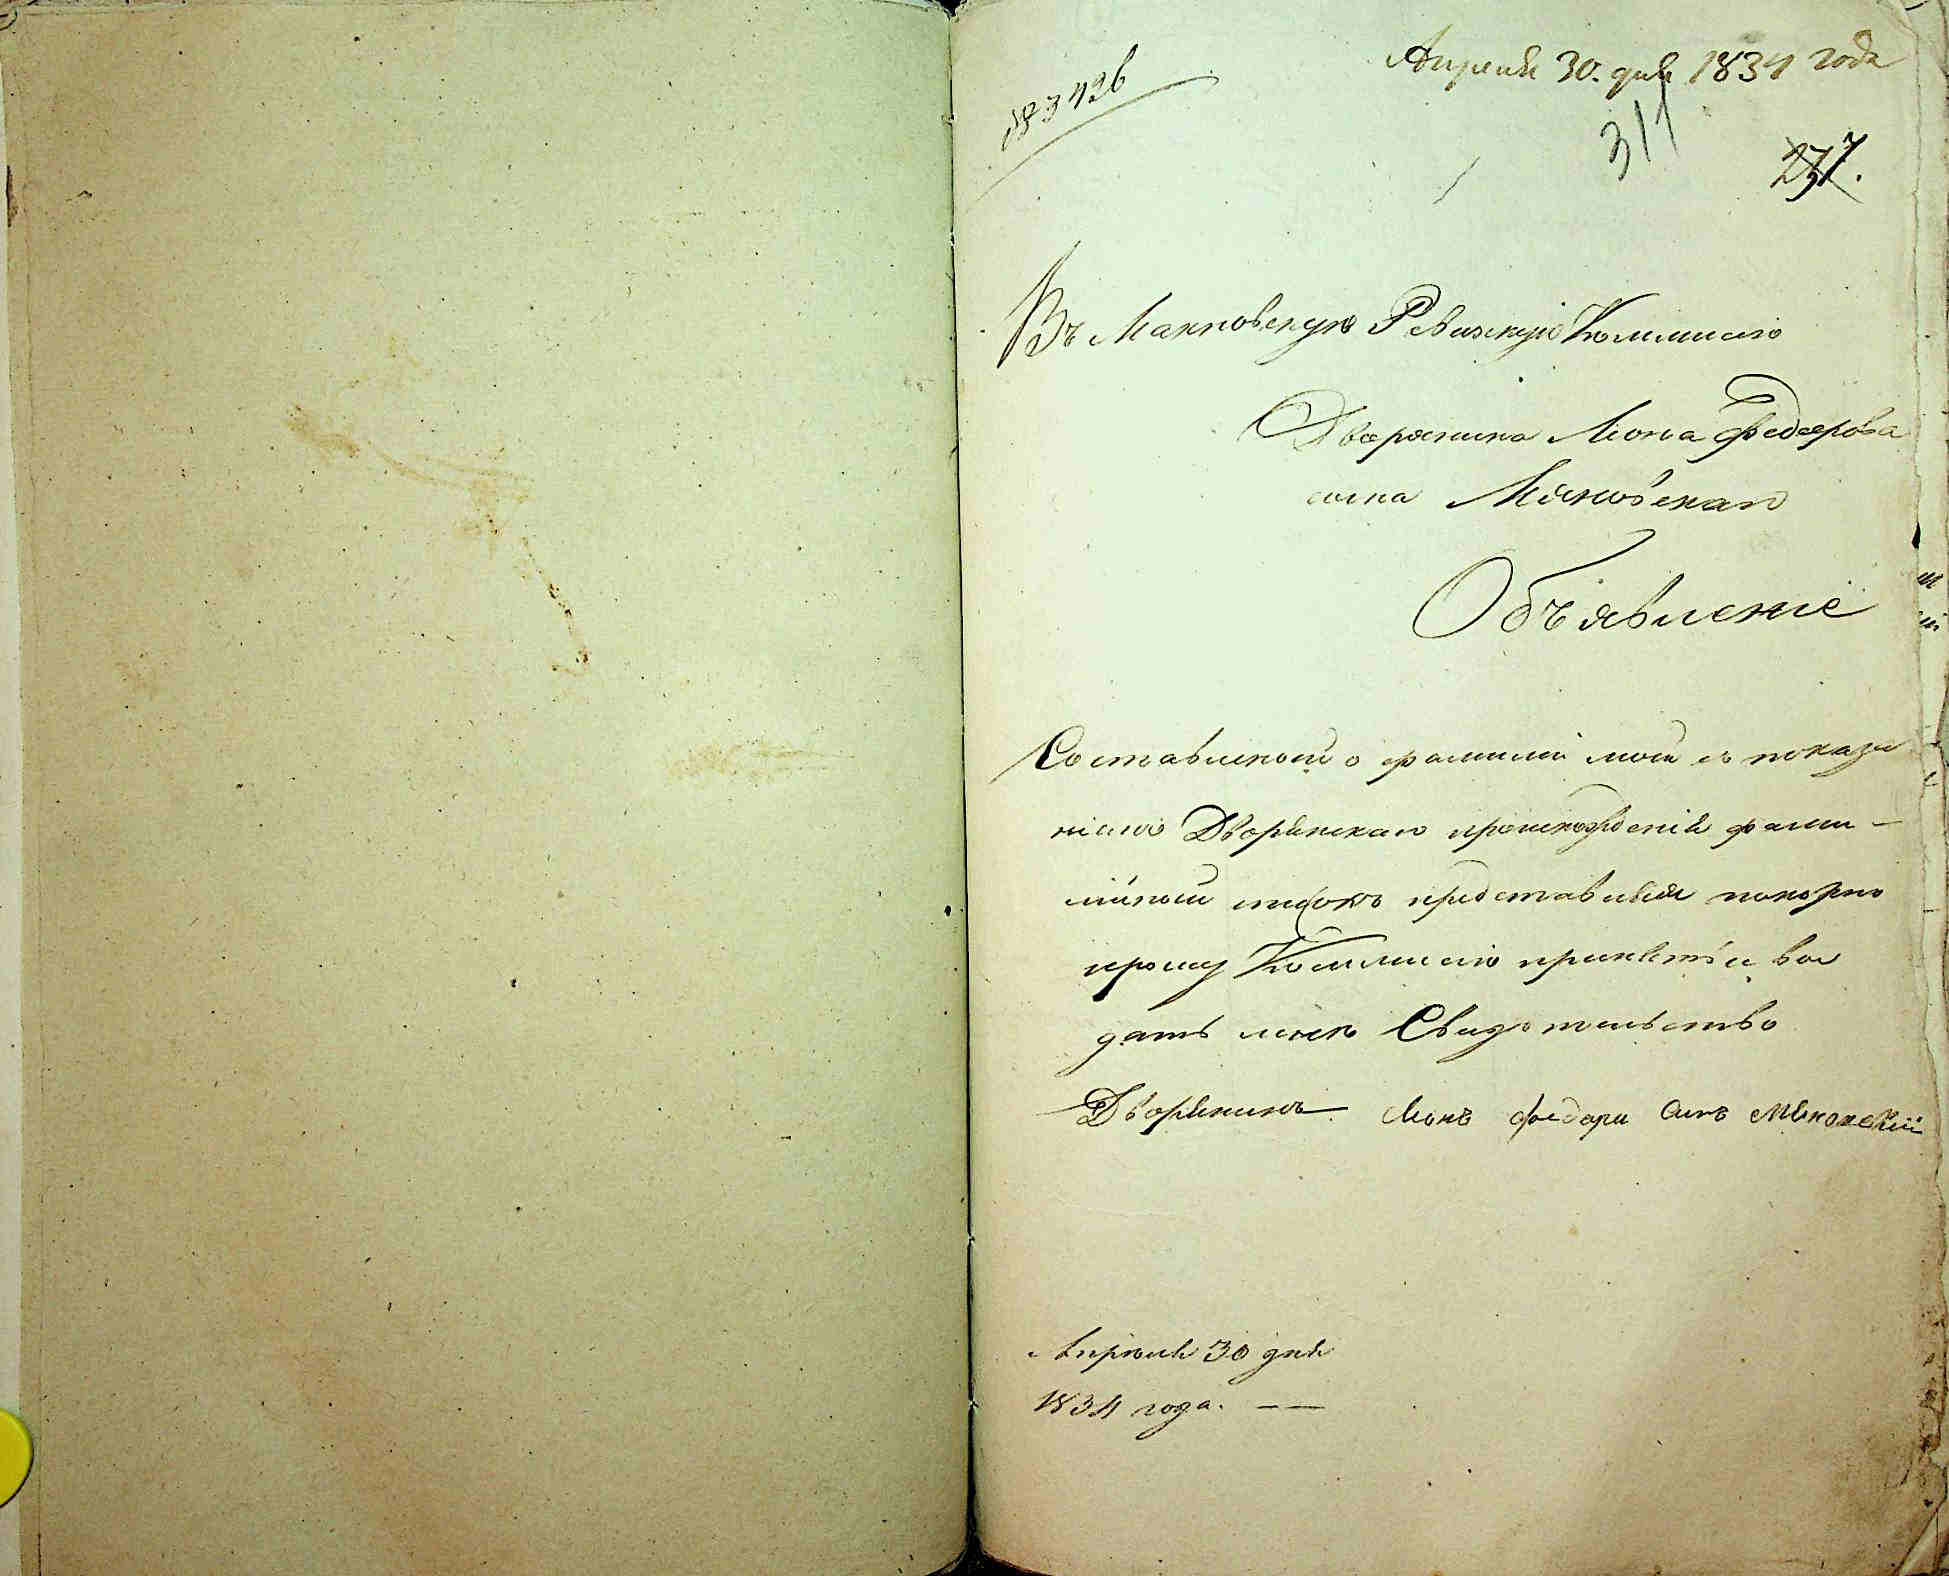 Апреля 30. дня 1834 года
№ 3426
311
237.
Въ Ревизкую Коммисію
Дворянина Леона Федорова
сына Мяновскаго
Объявленіе
Составленной о фамиліи моей съ показа
ніемъ Дворянскаго происхожденія фами-
лійной списокъ представляя покорно
прошу Коммисію принять и вы
дать мнѣ Свидѣтельство
Дворянинъ Леонъ федора Сынъ
Апреля 30 дня
1834 года. — —